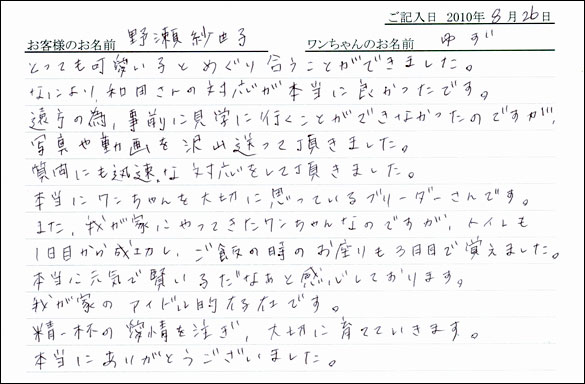 ご記入日 2010年 8月26日
お客様のお名前 野瀬 紗由子 ワンちゃんのお名前 ゆず
とっても可愛い子とめぐり合うことができました。
なにより、和田さんの対応が本当に良かったです。
遠方の為、事前に見学に行くことができなかったのですが、
写真や動画を沢山送って頂きました。
質問にも迅速な対応をして頂きました。
本当にワンちゃんを大切に思っているブリーダーさんです。
また、我が家にやってきたワンちゃんなのですが、トイレも
1日目から成功し、ご飯の時のお座りも3日目で覚えました。
本当に元気で賢い子だなぁと感心しております。
我が家のアイドル的存在です。
精一杯の愛情を注ぎ、大切に育てていきます。
本当にありがとうございました。